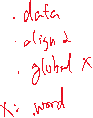 .data
.align 2
.global X
X: .word